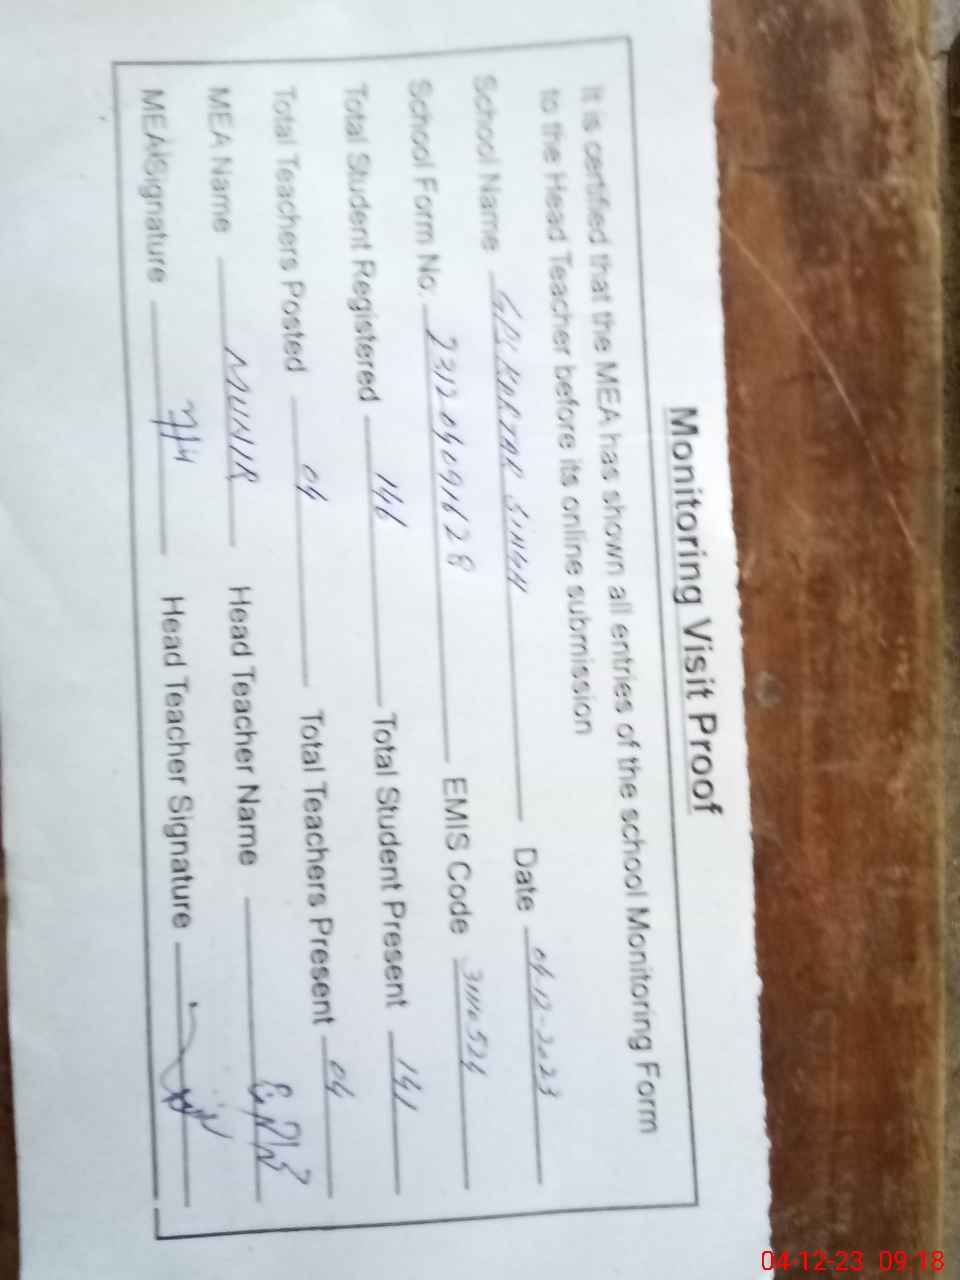 Monitoring Visit Proof
It is certified that the MEA has shown all entries of the school Monitoring Form
to the Head Teacher before its online submission
School Name GPS KARTAR SINGH Date 04-12-2023
School Form No. 231204091628 EMIS Code
Total Student Registered 146 Total Student Present 141
Total Teachers Posted 04 Total Teachers Present 04
MEA Name MUNIR Head Teacher Name
MEA Signature Head Teacher Signature
04-12-23 09:18